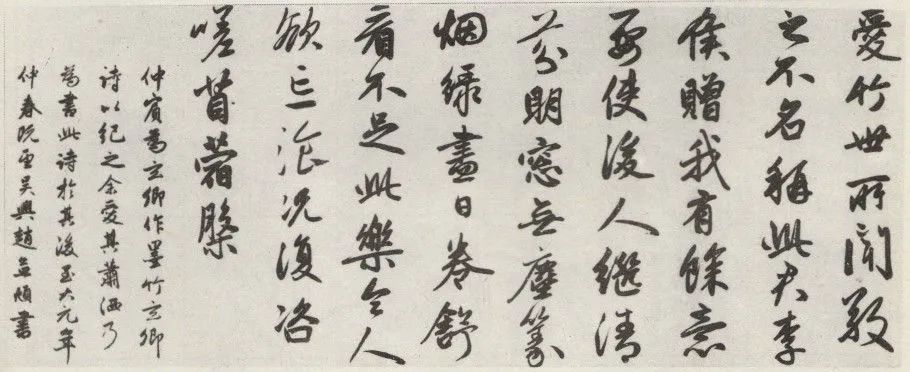 愛竹世所聞敬
之不名稱此君李
侯贈我有餘意
要使後人繼清
芬明窓無塵篆
烟綠盡日卷舒
看不足此樂令人
欲忘飡況復咨
嗟苜蓿槃
仲賓為玄卿作墨竹玄卿
詩以紀之余愛其蕭洒乃
為書此詩於其後至大元年
仲春既望吳興趙孟頫書